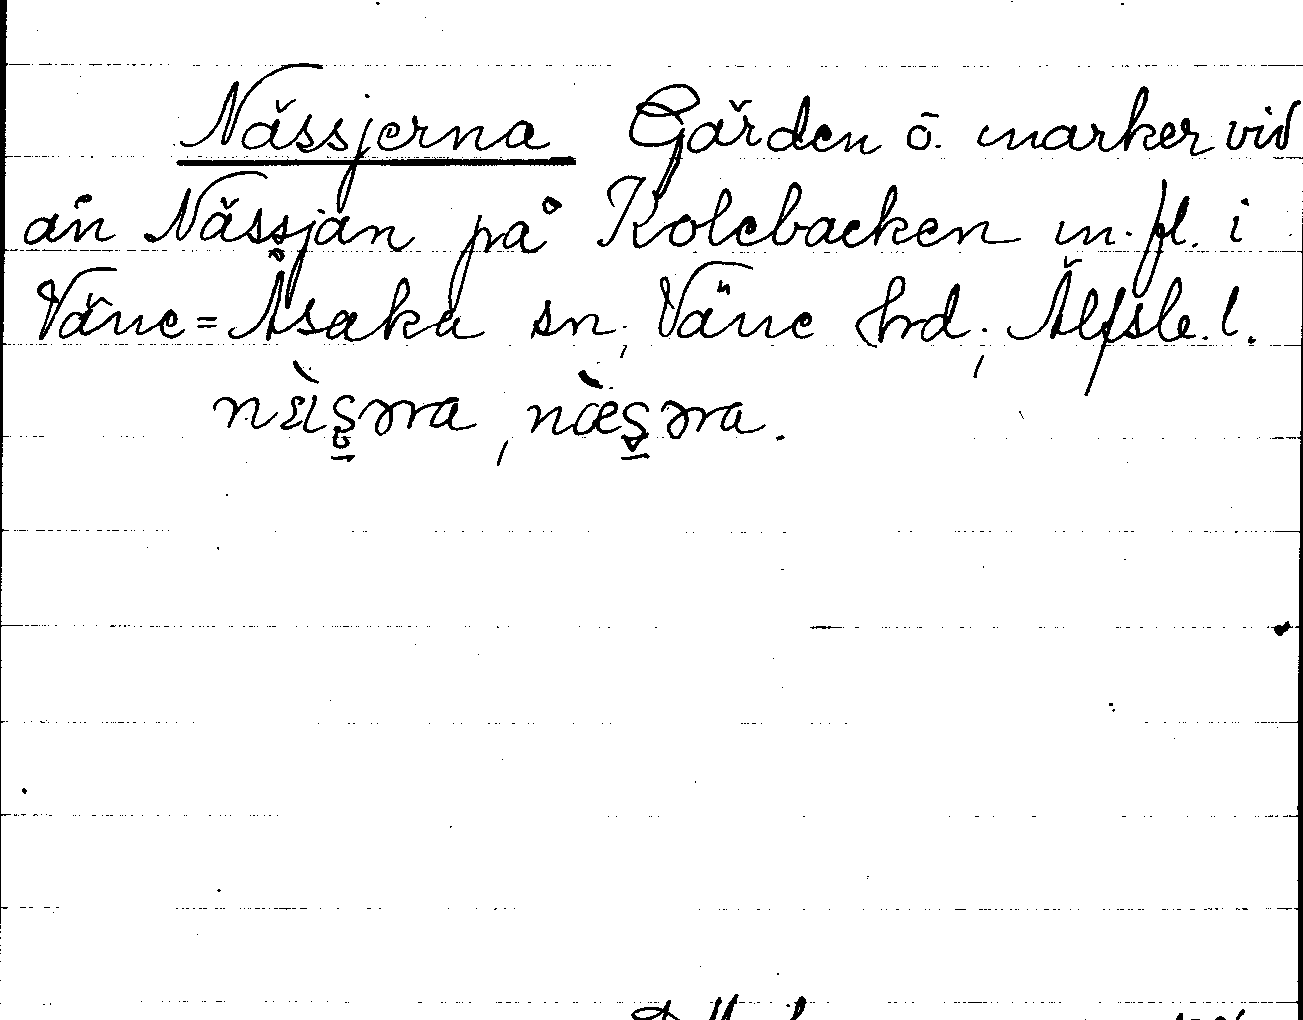 Nässjerna Gärden o. marker vid
ån Nässjan på Kolebacken m. fl. i
Väne=Åsaka sn, Väne hrd, Älfsb. l.
nèi̯s̮əra, næ̀s̮əra.